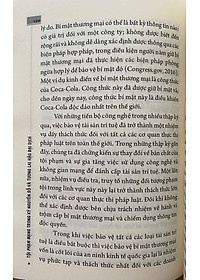 lý do. Bí mật thương mại có thể là bất kỳ thông tin nào
có giá trị đối với một công ty; không được biết đến
rộng rãi và không dễ dàng xác định được thông qua các
biện pháp hợp pháp, trong điều kiện người nắm giữ bí
mật thương mại đã thực hiện các biện pháp phòng
ngừa hợp lý để bảo vệ bí mật đó (Congress.gov, 2016).
Một ví dụ kinh điển về bí mật thương mại là công thức
của Coca-Cola. Công thức này đã được bảo mật từ
cho đến ngày nay, công thức bí mật này là điều khiến
Coca-Cola độc đáo nhất trên thế giới.
Với những tiến bộ công nghệ trong nhiều thập kỷ
vậy, việc bảo vệ tài sản trí tuệ đã trở thành một nhiệm
vụ đầy thách thức đối với tất cả các cơ quan thực thi
pháp luật trên thế giới. Trong những thập kỷ
chúng ta đã chứng kiến sự thay đổi về
tội phạm và sự gia tăng việc sử dụng công nghệ và
không gian mạng để đánh cắp tài sản trí tuệ. Một lần
nữa, nhiệm vụ điều tra, truy tố những đối tượng phạm
tội trong lĩnh vực này lại trở thành thách thức lớn
đối với các cơ quan thực thi pháp luật. Đôi khi không
thể xác định được chủ thể chịu trách nhiệm về hành vi
trộm cắp bí mật thương mại và chiếm dụng thông tin
độc quyền.
Trong khi việc bảo vệ tất cả các loại tài sản trí
tuệ là điều bắt buộc thì việc bảo vệ bí mật thương mại
là yếu tố cốt lõi của an ninh kinh tế quốc gia lại là nhiệm
vụ phức tạp và thách thức nhất đối với các nhà
TỘI PHẠM MẠNG TRONG KỶ NGUYÊN SỐ VÀ TƯƠNG LAI HẬU ĐẠI DỊCH